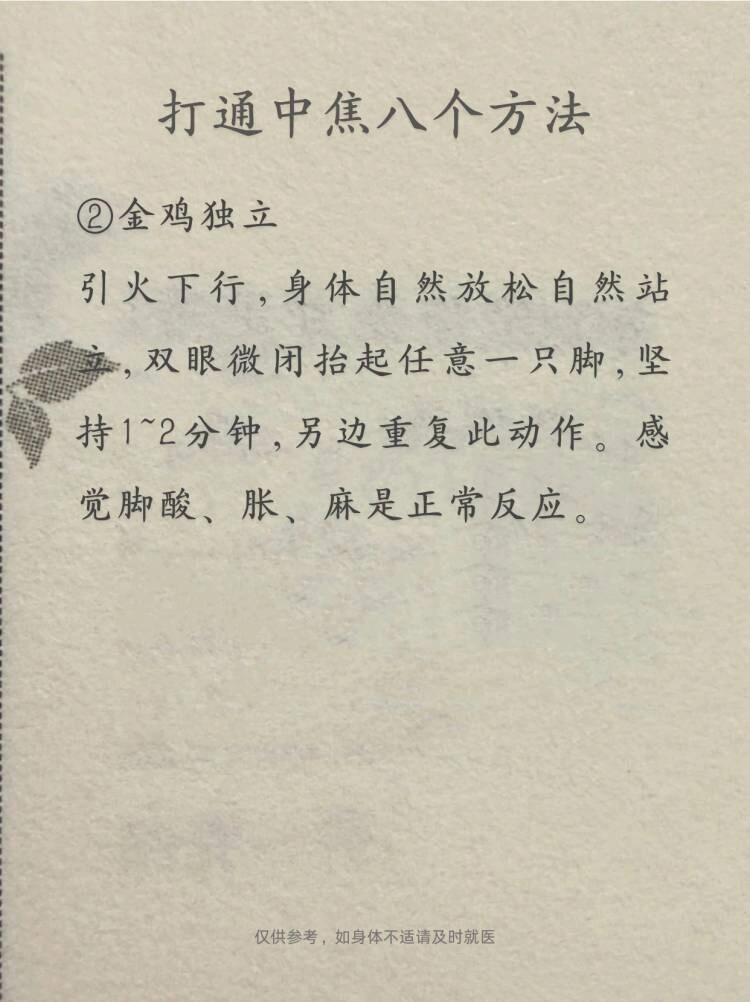 打通中焦八个方法
②金鸡独立
引火下行,身体自然放松自然站
立,双眼微闭抬起任意一只脚,坚
持1~2分钟,另边重复此动作。感
觉脚酸、胀、麻是正常反应。
仅供参考，如身体不适请及时就医